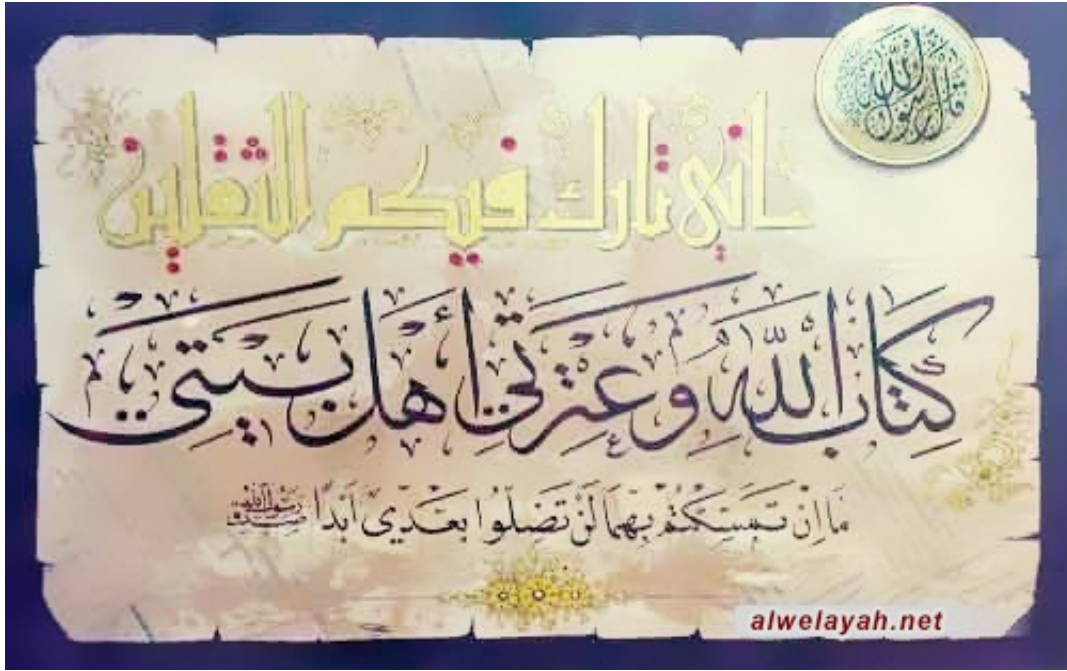 قال رسول الله
إني تارك فيكم الثقلين
كِتَابَ اللّٰهِ وَعِتْرَتِي أَهْلَ بَيْتِي
مَا اِنْ تَمَسَّكْتُمْ بِهِمَا لَنْ تَضِلُّوا بَعْدِي اَبَدًا
رسول الله
alwelayah.net